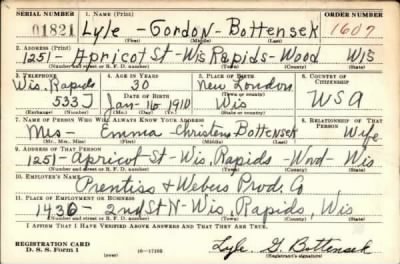 SERIAL NUMBER 1. NAME (Print) ORDER NUMBER
01821 Lyle - Gordon - Bottensek 1607
(First) (Middle) (Last)
2. ADDRESS (Print)
1251 - Apricot St - Wis Rapids - Wood Wis
(Number and street or R. F. D. number) (Town) (County) (State)
3. TELEPHONE 4. AGE IN YEARS 5. PLACE OF BIRTH 6. COUNTRY OF CITIZENSHIP
Wis. Rapids 30 New London
DATE OF BIRTH (Town or county)
533J Jan - 16 1910 Wis USA
(Exchange) (Number) (Mo.) (Day) (Yr.) (State or country)
7. NAME OF PERSON WHO WILL ALWAYS KNOW YOUR ADDRESS 8. RELATIONSHIP OF THAT PERSON
Mrs - Emma Bottensek Wife
(Mr., Mrs., Miss) (First) (Middle) (Last)
9. ADDRESS OF THAT PERSON
1251 - Apricot St - Wis. Rapids - Wood - Wis
(Number and street or R. F. D. number) (Town) (County) (State)
10. EMPLOYER'S NAME
Prentiss & Webers Prod. Co
11. PLACE OF EMPLOYMENT OR BUSINESS
1436 - 2nd St N - Wis. Rapids, Wis
(Number and street or R. F. D. number) (Town) (County) (State)
I AFFIRM THAT I HAVE VERIFIED ABOVE ANSWERS AND THAT THEY ARE TRUE.
REGISTRATION CARD
D. S. S. Form 1 Lyle G. Bottensek
(Registrant's signature)